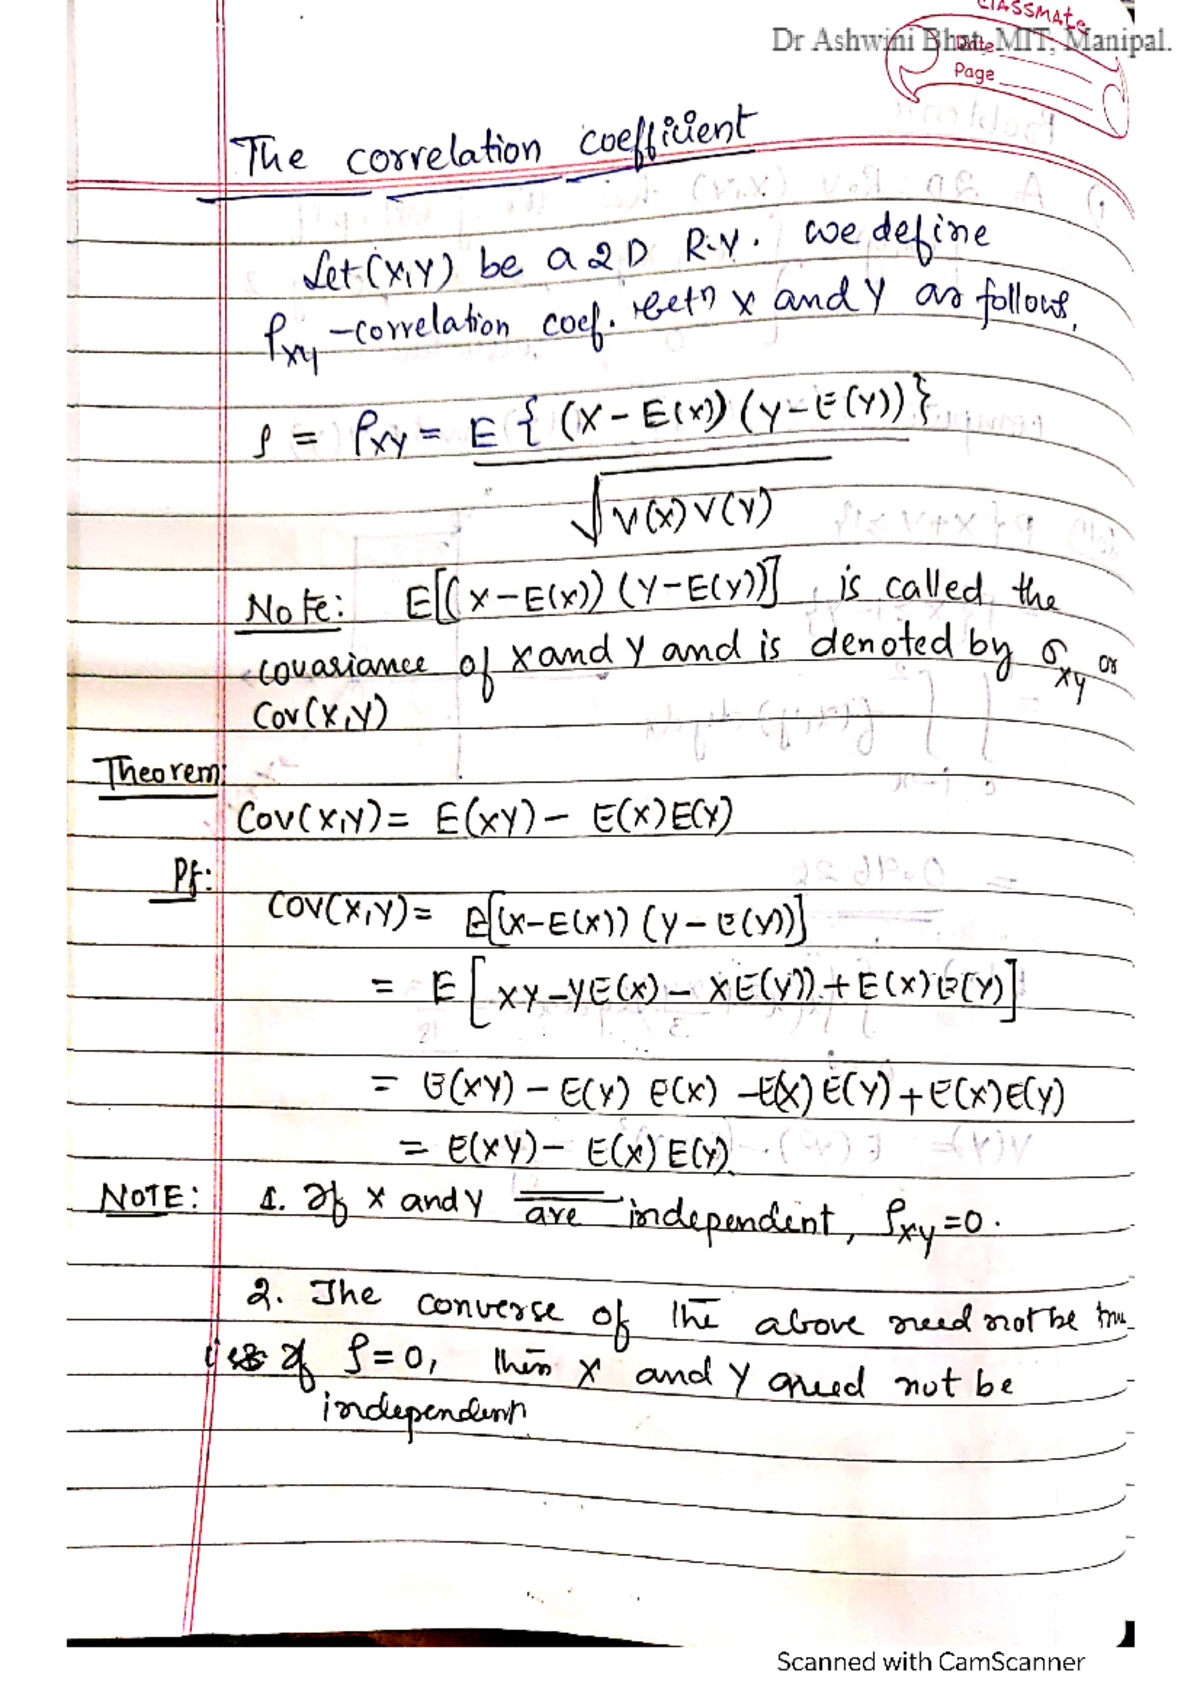 CLASSMATE
Dr Ashwini Bhat, MIT, Manipal.
Date
Page
The correlation coefficient
Let (X,Y) be a 2D R.V. we define
ρxy -correlation coef. betn X and Y as follows,
ρ = ρxy = E { (X - E(X)) (Y - E(Y)) }
√V(X) V(Y)
Note: E[(X - E(X)) (Y - E(Y))] is called the
covariance of X and Y and is denoted by σxy or
Cov(X,Y)
Theorem:
Cov(X,Y) = E(XY) - E(X)E(Y)
Pf:
COV(X,Y) = E[(X-E(X)) (Y-E(Y))]
= E[XY -YE(X) - XE(Y)) + E(X)E(Y)]
= E(XY) - E(Y) E(X) -E(X) E(Y) + E(X)E(Y)
= E(XY) - E(X) E(Y).
NOTE: 1. If X and Y are independent, ρxy =0.
2. The converse of the above need not be true
ie If ρ=0, then X and Y need not be
independent
Scanned with CamScanner